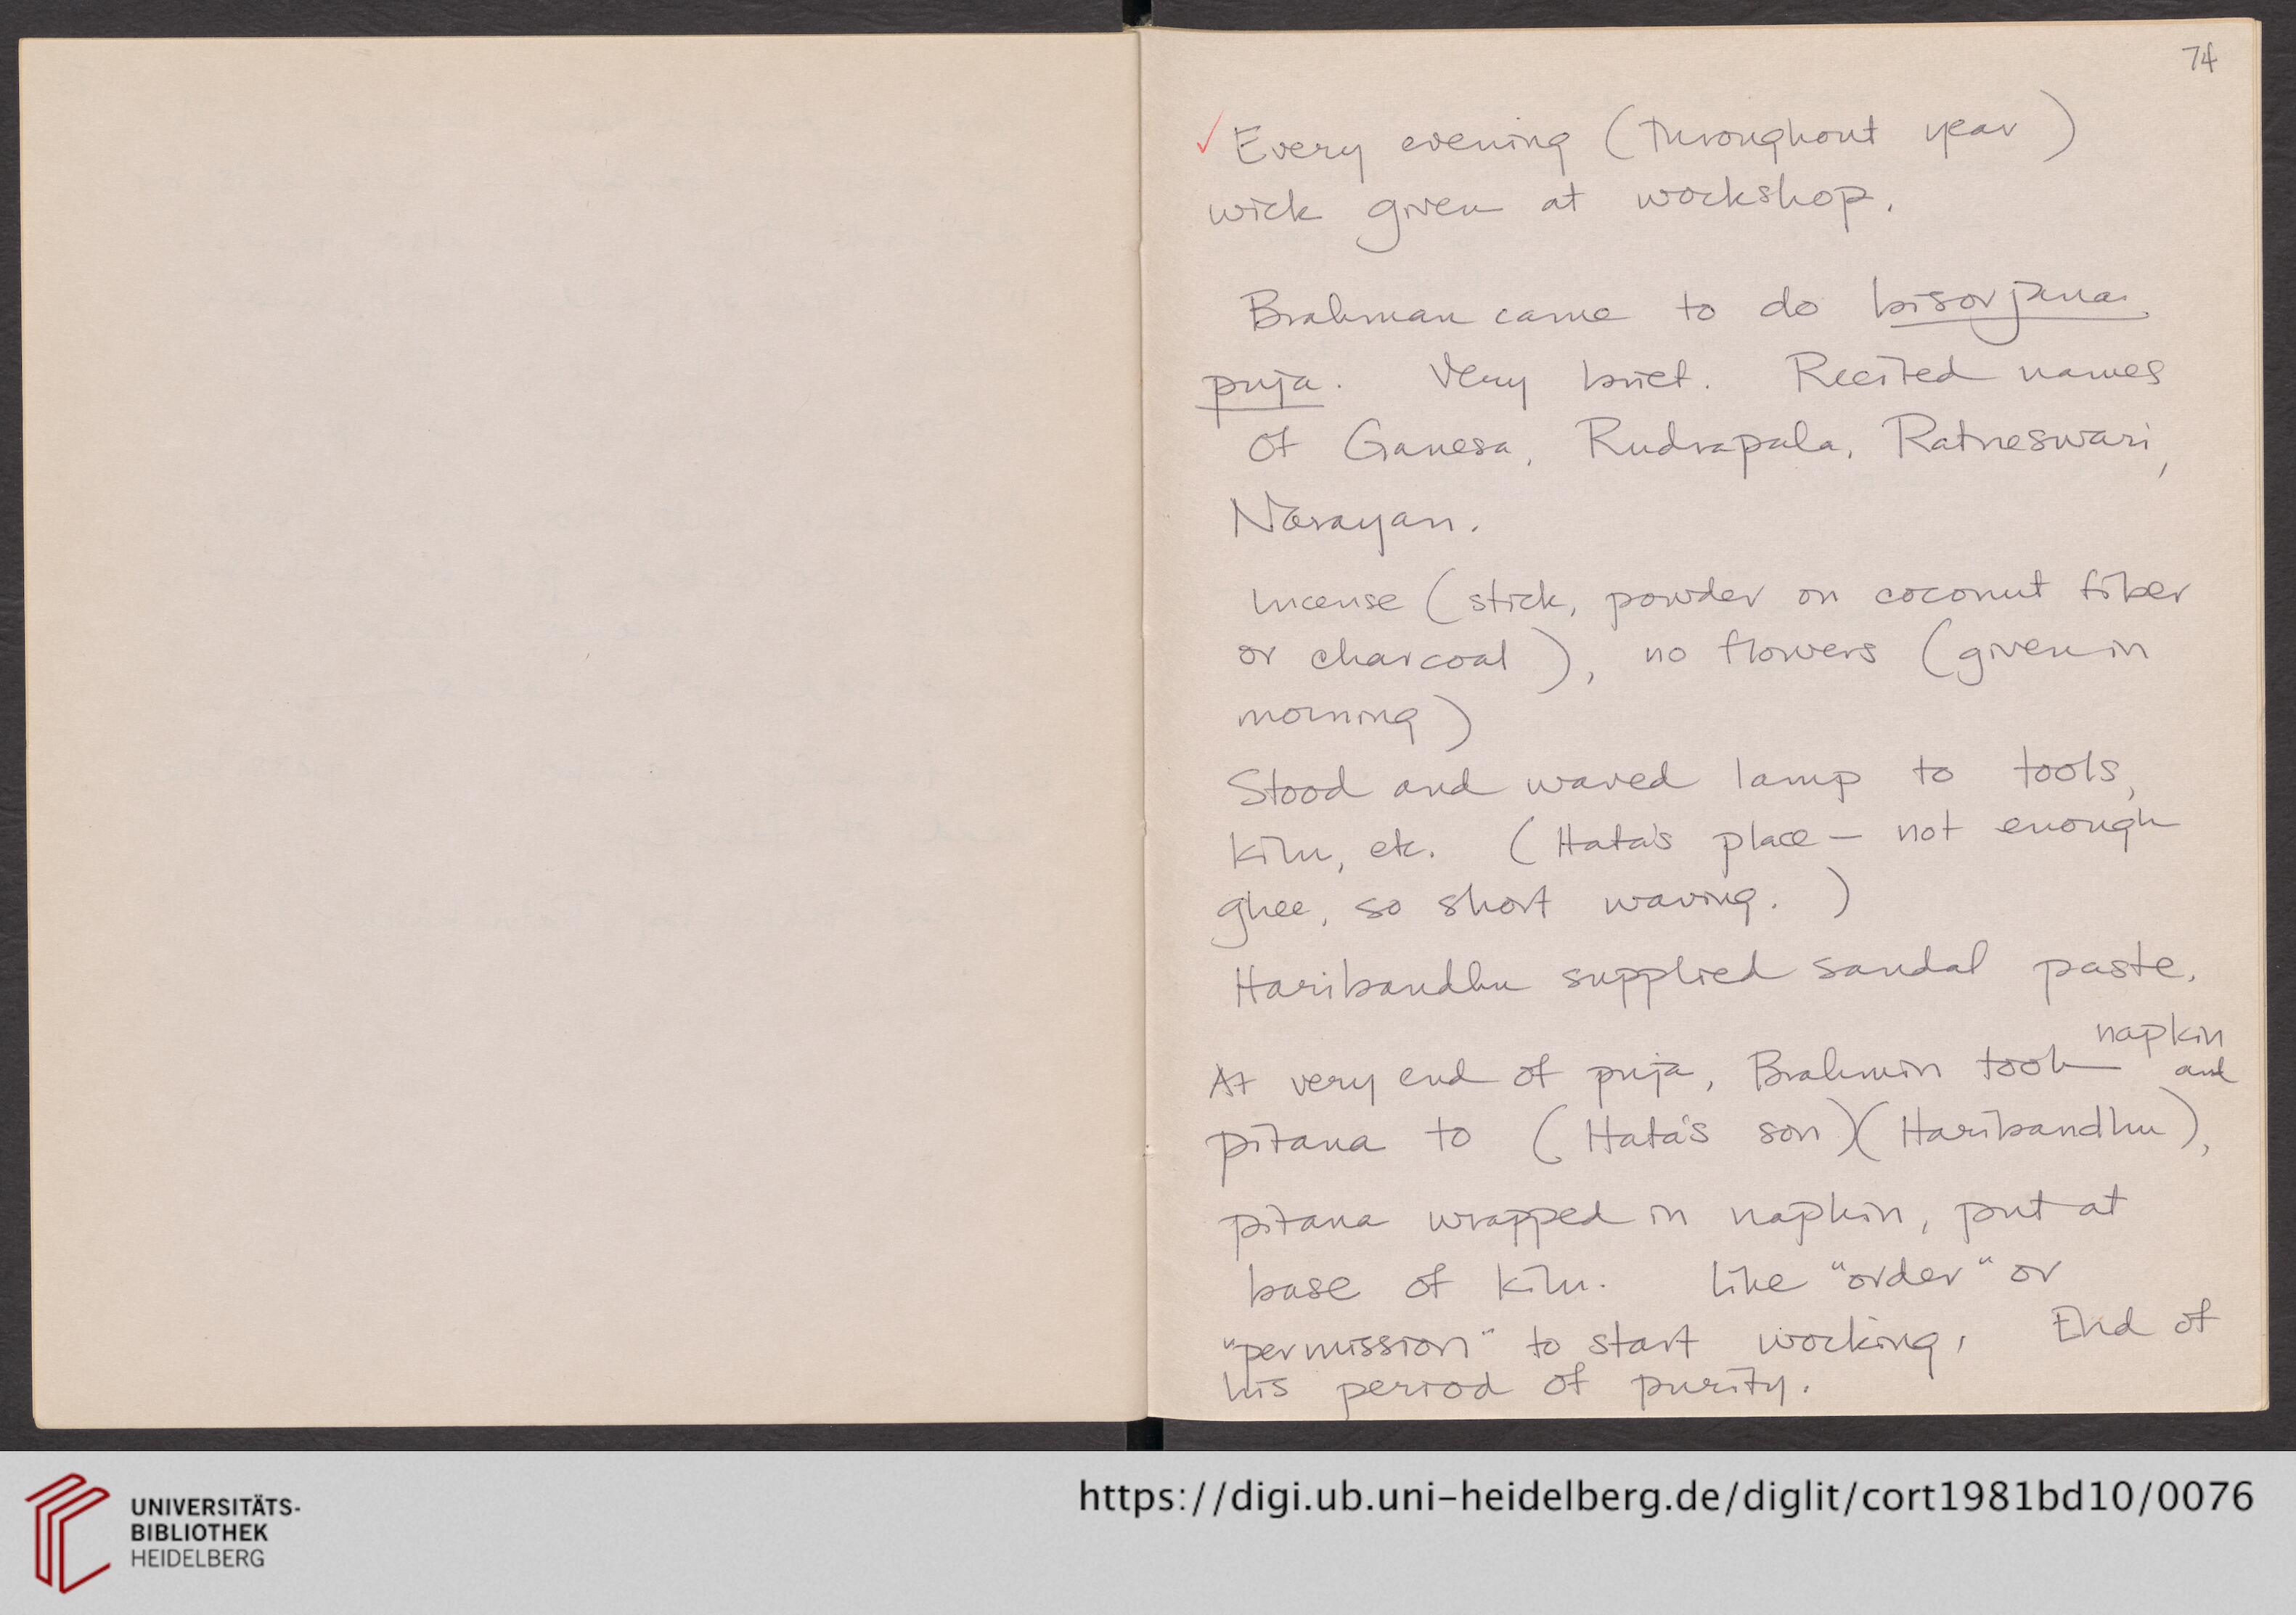 74
✓ Every evening (throughout year)
wick given at workshop.
Brahman came to do bisorjana
puja. Very brief. Recited names
of Ganesa, Rudrapala, Ratneswari,
Narayan.
Incense (stick, powder on coconut fiber
or charcoal), no flowers (given in
morning)
Stood and waved lamp to tools,
kiln, etc. (Hata's place – not enough
ghee, so short waving.)
Haribandhu supplied sandal paste.
At very end of puja, Brahmin took napkin and
pitana to (Hata's son)(Haribandhu),
pitana wrapped in napkin, put at
base of kiln. Like "order" or
"permission" to start working. End of
his period of purity.
UNIVERSITÄTS-
BIBLIOTHEK
HEIDELBERG
https://digi.ub.uni-heidelberg.de/diglit/cort1981bd10/0076